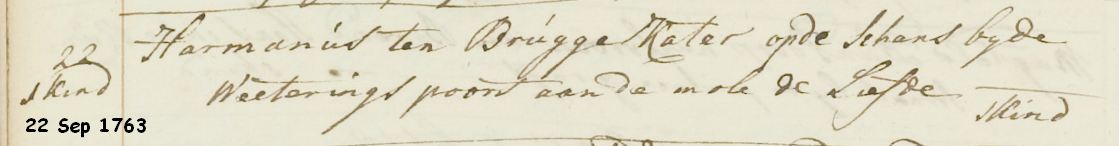 22 Harmanús ten Brúgge Kater opde Schans byde
1 kind Weeterings poort aande mole de Liefde 1 kind
22 Sep 1763